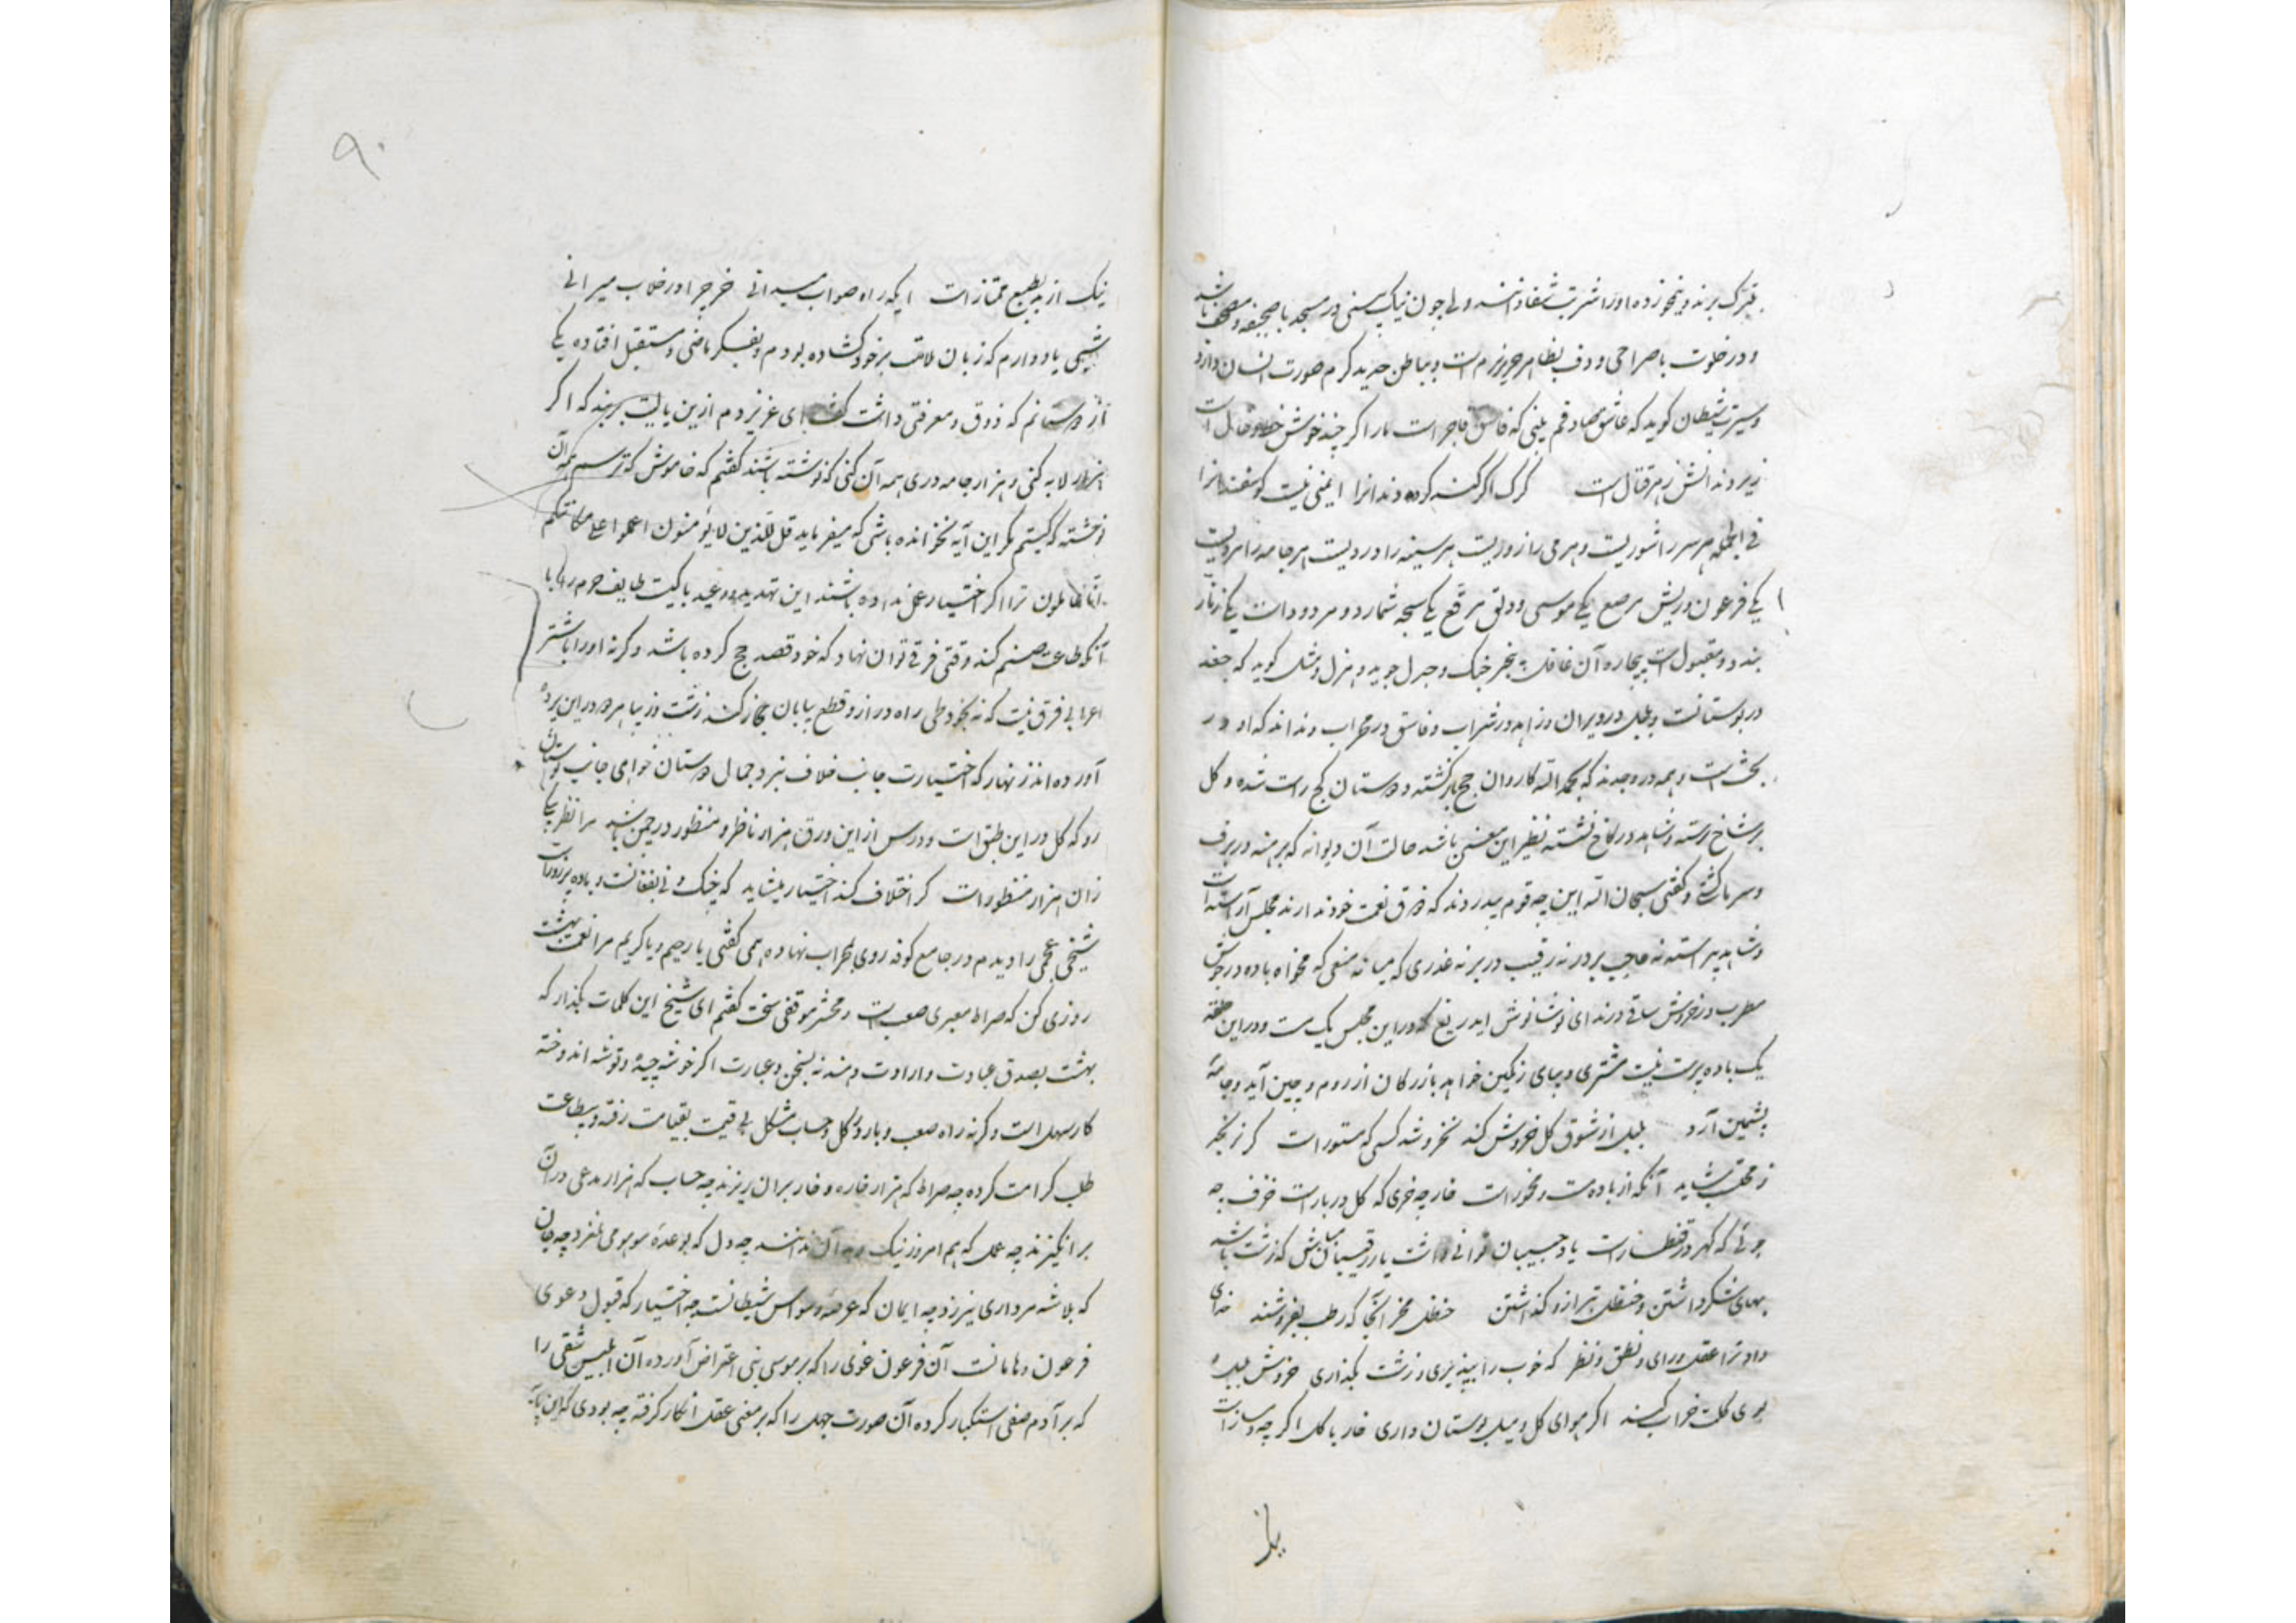 تبرک برند و بخورند و او را شربت شفا دانند ولی چون نیک ببینی در مسجد با صحیفه و مصحف باشد
و در خلوت با صراحی و دف بظاهر چیز نرم است و بباطن حدید گرم صورت انسان دارد
و سیرت شیطان گوید که عاشق صادقم بلی که فاسق فاجر است مار اگر چند خوش خط و خال است
زیر دندانش زهر قتال است گرگ اگر کند کرده دندانرا ایمنی نیست گوسفندانرا
فی الجمله هر سر را شوریست و هر می را زوریست هر سینه را دردیست هر جامه را مردیست
یکی فرعون و ریش مرصع یکی موسی و دلق مرقع یکی سبحه شمارد و مردود است یکی زنار
بندد و مقبول است بیچاره آن غافل بیخبر جنگ و جدل جوید و هزل و مثل گوید که جغد
در بوستانست و بلبل در ویران و زاهد در شراب و فاسق در محراب و نداند که او در
بحث است و همه در وجدند که بحمد الله کاروان حج بازگشته و دوستان کج راست شده و گل
بر شاخ رسته و شاهد در کاخ نشسته نظیر این معنی باشد حالت آن دیوانه که برهنه در برف
و سرما گشتی و گفتی سبحان الله این چه قوم بیدردند که ذوق نعمت خود ندارند مجلس آراسته است
و شاهد پیراسته نه حاجب بر در نه رقیب در بر نه عذری که میانه منعی که مخواه باده در جوش
مطرب در خروش ساقی در ندای نوشانوش ای دریغ که در این مجلس یک مست و در این حلقه
یک باده پرست نیست مشتری دیبای رنگین خواهد بازرگان از روم و چین آید و جامه
پشمین آرد بلبل از شوق گل خروش کند نخروشد کسی که مستور است گر نرنجد
ز محتسب شاید آنکه از باده مست و مخمور است خار چه خری که گل در بار است خزف چه
جوئی که گهر در قطار است یاد حبیبان توانی داشت یار رقیبان مباش که زشت باشد
بهای شکر داشتن و حنظل بترازو گذاشتن حنظل مخر آنجا که رطب بفروشند خدای
داد ترا عقل و رای و نطق و نظر که خوب را بپذیری و زشت بگذاری خروش بلبل و
بوی گلت خراب کند اگر هوای گل و میل بوستان داری خار با گل اگر چه دمساز است
نیک از بد بطبع ممتاز است ایکه راه صواب میدانی خر چرا در خلاب میرانی
شبی یاد دارم که زبان ملامت بر خود گشاده بودم و بفکر ماضی و مستقبل افتاده یکی
از دوستانم که ذوق و معرفتی داشت گفت ای عزیز دم ازین بایست بربند که اگر
هزار لابه کنی و هزار جامه دری همه آن کنی که نوشته باشند گفتم که خاموش که ترسم همه آن
نوشته که گیتم مگر این آیه نخوانده باشی که میفرماید قل للذین لا یؤمنون اعملوا علی مکانتکم
انا عاملون ترا اگر اختیار عمل نداده باشند این تهدید و وعید با کیست طایف حرم را با
آنکه طاعت صنم کند وقتی فرق توان نهاد که خود قصد حج کرده باشد و گرنه او را با شتر
اعرابی فرق نیست که نه بخود طی راه دراز و قطع بیابان حجاز کند زشت و زیبا هر دو در این پرده
آورده اند زنهار که اختیارت جانب خلاف نبرد جمال دوستان خواهی جانب بوستان
رو که گل در این طبق است و درس از این ورق هزار ناظر و منظور در چمن باشد مرا نظر بیکی
زان هزار منظور است گر اختلاف کند اختیار میشاید که چنگ و نی بفغانست و باده پر زور است
شیخی عجمی را دیدم در جامع کوفه روی بمحراب نهاده همی گفتی یا رحیم و یا کریم مرا نعمت بهشت
روزی کن که صراط معبری صعب است و محشر موقفی سخت گفتم ای شیخ این کلمات بگذار که
بهشت بصدق عبادت و ارادت دهند نه بسخن و عبارت اگر خوشه چیده و توشه اندوخته
کار سهل است و گرنه راه صعب و بار و گل و حساب مشکل بی قیمت بقیامت رفته و بیطاعت
طلب کرامت کرده چه صراط که هزار خاره و خار بران ریزند چه حساب که هزار مدعی در آن
برانگیزند چه عمل که هم امروز نیک و بد آن ندانند چه دل که بوعده موهومی لغزد چه جان
که بلاشه مرداری نیرزد چه ایمان که عرضه وسواس شیطانست چه اختیار که قبول دعوی
فرعون و هامانست آن فرعون غوی را که بر موسی نبی اعتراض آورده آن ابلیس شقی را
که بر آدم صفی استکبار کرده آن صورت جهل را که بر معنی عقل انکار گرفته چه بودی
۹۰